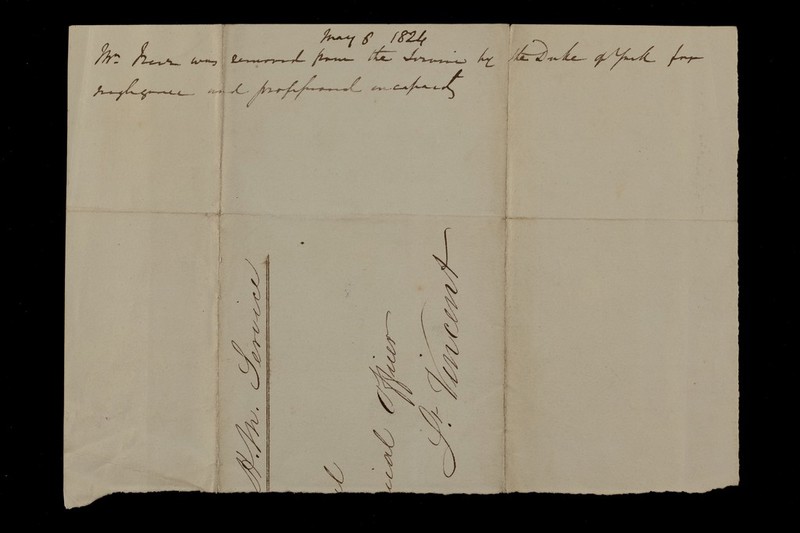 May 6 1824
Mr. was removed from the Service by the Duke of York for
negligence and professional incapacity
H. M. Service
ical Officer
St. Vincent